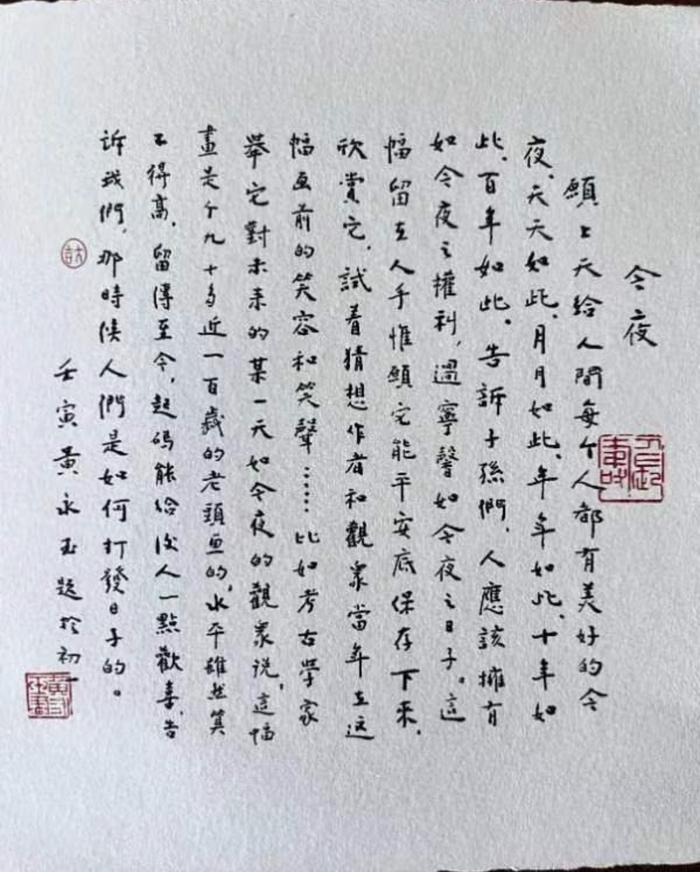 今夜
願上天给人間每个人都有美好的今
夜、天天如此、月月如此、年年如此、十年如
此、百年如此。告訴子孫們，人應該擁有
如今夜之權利，過寧馨如今夜之日子。這
幅留在人手惟願它能平安底保存下来，
欣賞它，試着猜想作者和觀衆當年在这
幅画前的笑容和笑聲……比如考古學家
舉它對未来的某一天如今夜的觀衆说，這幅
畫是个九十多近一百歲的老頭画的，水平雖然算
不得高，留得至今，起碼能给後人一點歡喜，告
訴我們，那時候人們是如何打發日子的。
壬寅黄永玉題於初一